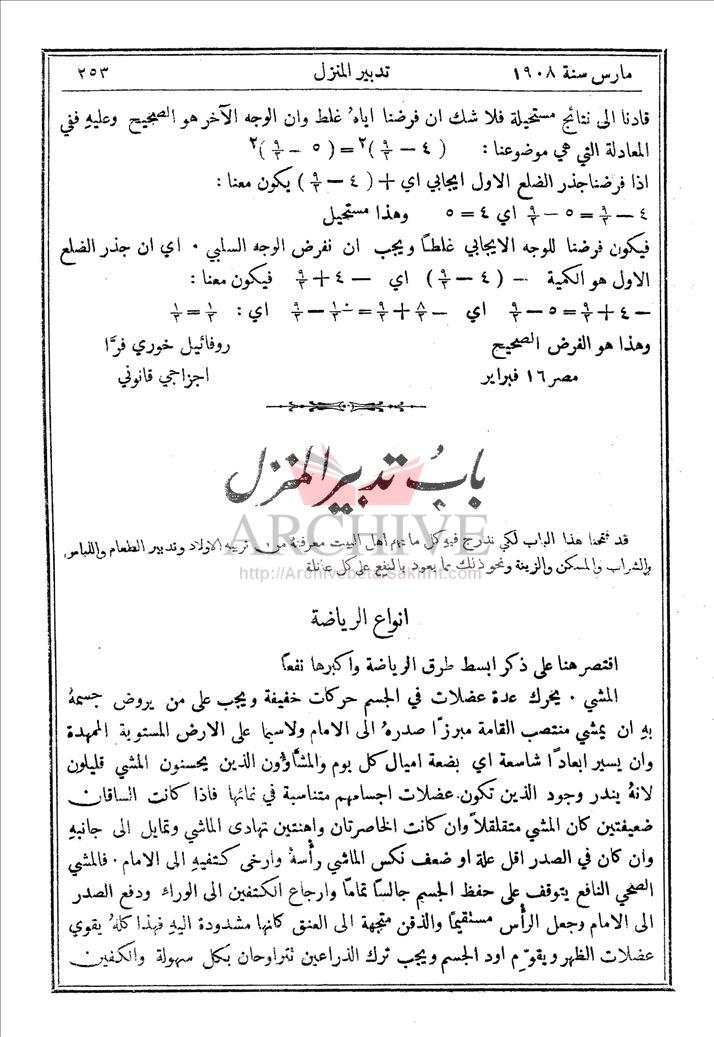 مارس سنة ١٩٠٨ تدبير المنزل ٢٥٣
قادنا الى نتائج مستحيلة فلا شك ان فرضنا اياهُ غلط وان الوجه الآخر هو الصحيح وعليهِ ففي
المعادلة التي هي موضوعنا : ( ٤ − ٩/٢ )٢ = ( ٥ − ٩/٢ )٢
اذا فرضنا جذر الضلع الاول ايجابي اي + ( ٤ − ٩/٢ ) يكون معنا :
٤ − ٩/٢ = ٥ − ٩/٢ اي ٤ = ٥ وهذا مستحيل
فيكون فرضنا للوجه الايجابي غلطاً ويجب ان نفرض الوجه السلبي ٠ اي ان جذر الضلع
الاول هو الكمية − ( ٤ − ٩/٢ ) اي − ٤ + ٩/٢ فيكون معنا :
− ٤ + ٩/٢ = ٥ − ٩/٢ اي − ٨/٢ + ٩/٢ = ١٠/٢ − ٩/٢ اي : ١/٢ = ١/٢
وهذا هو الفرض الصحيح روفائيل خوري فرَّا
مصر ١٦ فبراير اجزاجي قانوني
بابُ تدبير المنزل
ARCHIVE
قد فتحنا هذا الباب لكي ندرج فيهِ كل ما يهم اهل البيت معرفتهُ من تربية الاولاد وتدبير الطعام واللباس
والشراب والمسكن والزينة ونحو ذلك مما يعود بالنفع على كل عائلة
http://Archivebeta.Sakhrit.com
انواع الرياضة
اقتصر هنا على ذكر ابسط طرق الرياضة واكبرها نفعاً
المشي ٠ يحرك عدة عضلات في الجسم حركات خفيفة ويجب على من يروض جسمهُ
بهِ ان يمشي منتصب القامة مبرزًا صدرهُ الى الامام ولاسيما على الارض المستوية الممهدة
وان يسير ابعادًا شاسعة اي بضعة اميال كل يوم والمشاؤون الذين يحسنون المشي قليلون
لانهُ يندر وجود الذين تكون عضلات اجسامهم متناسبة في نمائها فاذا كانت الساقان
ضعيفتين كان المشي متقلقلاً وان كانت الخاصرتان واهنتين تهادى الماشي وتمايل الى جانبهِ
وان كان في الصدر اقل علة او ضعف نكس الماشي رأسهُ وارخى كتفيهِ الى الامام ٠ فالمشي
الصحي النافع يتوقف على حفظ الجسم جالساً تماماً وارجاع الكتفين الى الوراء ودفع الصدر
الى الامام وجعل الرأس مستقيماً والذقن متجهة الى العنق كانها مشدودة اليهِ فهذا كلهُ يقوي
عضلات الظهر ويقوّم اود الجسم ويجب ترك الذراعين تتراوحان بكل سهولة والكفين